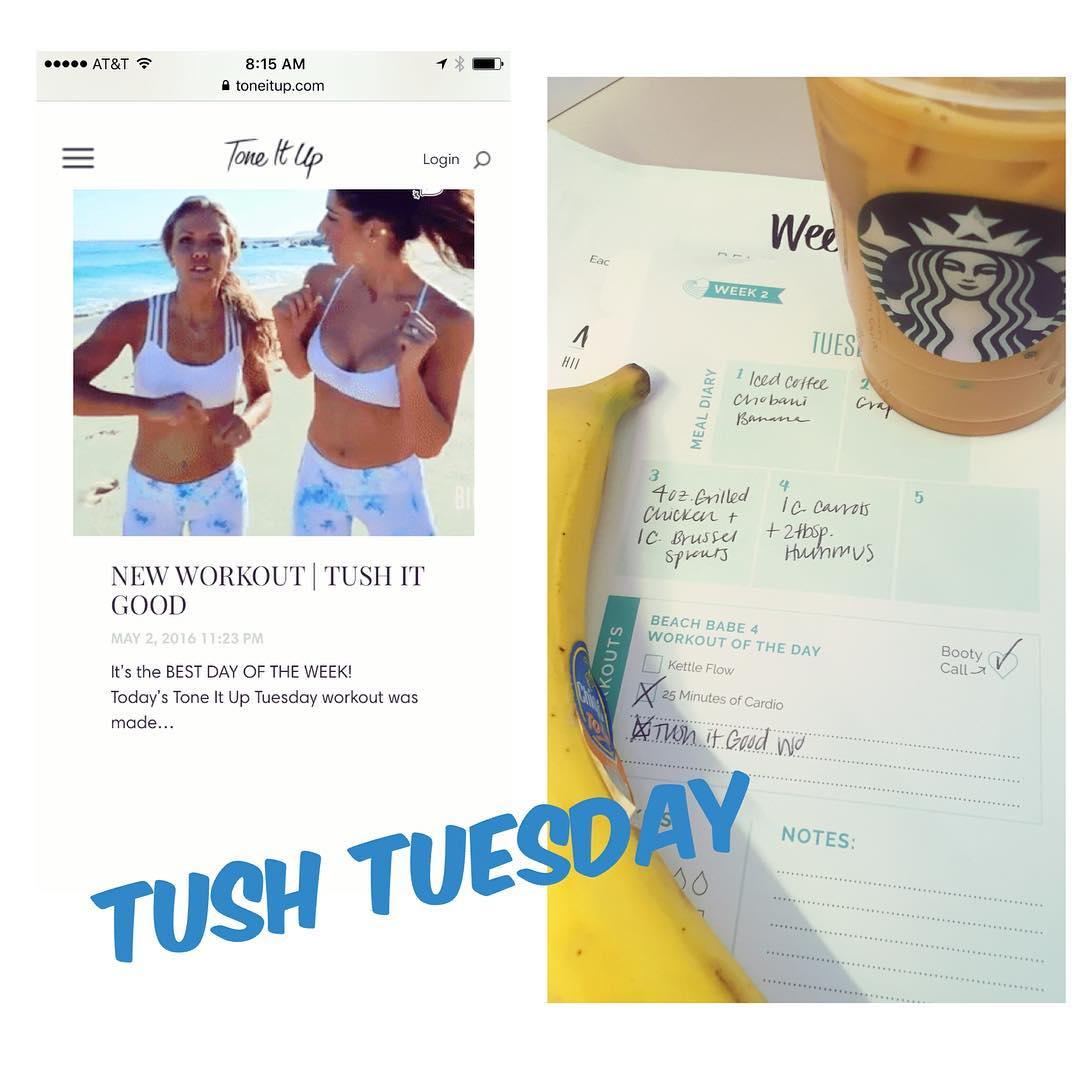 AT&T
8:15 AM
toneitup.com
Tone It Up
Login
NEW WORKOUT | TUSH IT
GOOD
MAY 2, 2016 11:23 PM
It's the BEST DAY OF THE WEEK!
Today's Tone It Up Tuesday workout was
made...
TUSH TUESDAY
Wee
Eac
WEEK 2
1
HII
TUES
MEAL DIARY
1 Iced Coffee
Chobani
Banana
2
Grap
3
4oz. Grilled
Chicken +
1 C. Brussel
sprouts
4
1 C. Carrots
+ 2 tbsp.
Hummus
5
KOUTS
BEACH BABE 4
WORKOUT OF THE DAY
Booty
Call
Kettle Flow
25 Minutes of Cardio
Tush it Good WO
NOTES: